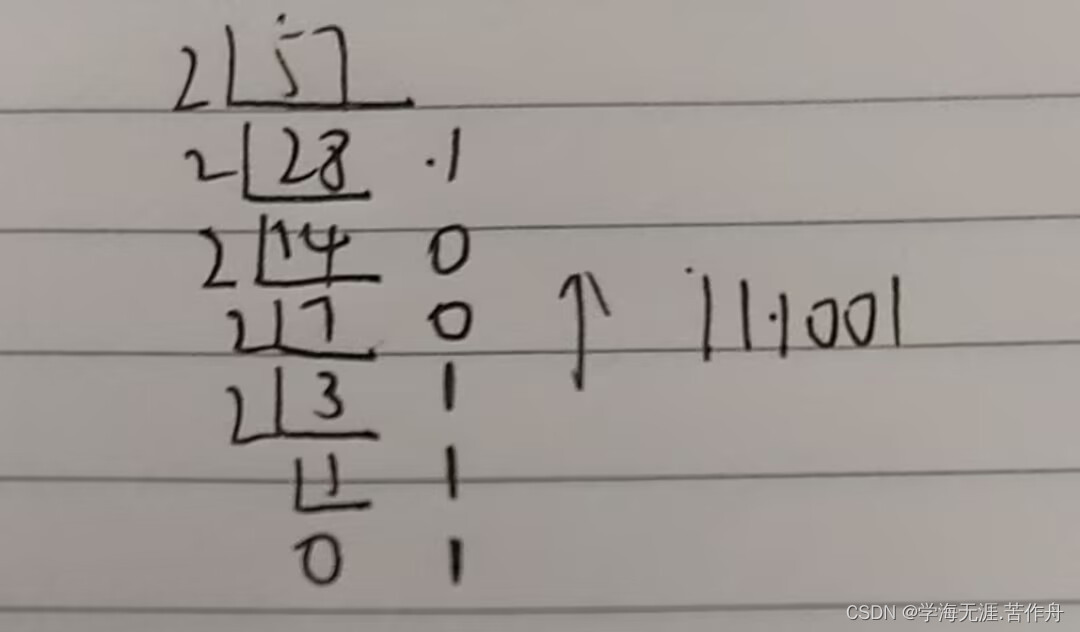 2 57
2 28 1
2 14 0
2 7 0
2 3 1
1 1
0 1
↑ 111001
CSDN @学海无涯.苦作舟